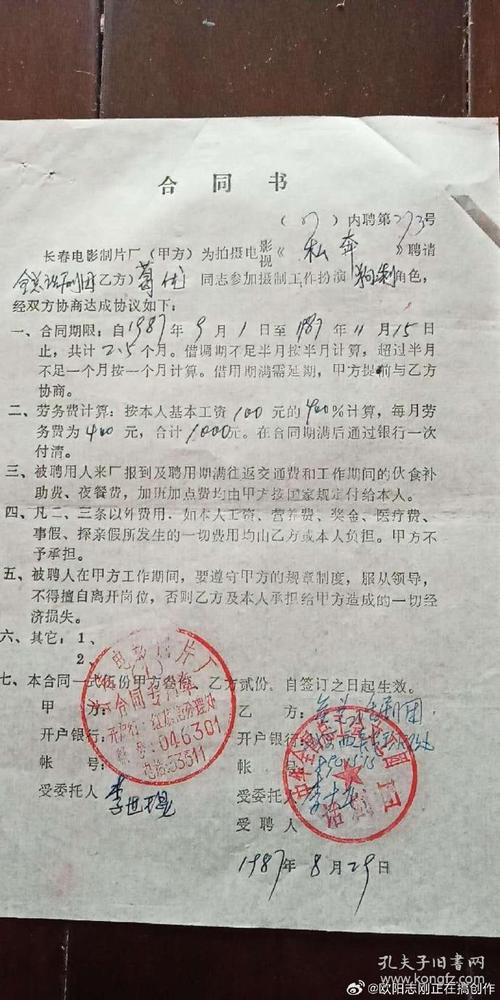 合同书
(87)内聘第273号
长春电影制片厂(甲方)为拍摄电影视《私奔》聘请
全总话剧团(乙方)葛优同志参加摄制工作扮演 角色,
经双方协商达成协议如下:
一、合同期限:自1987年9月1日至1987年11月15日
止,共计2.5个月。借调期不足半月按半月计算,超过半月
不足一个月按一个月计算。借用期满需延期,甲方提前与乙方
协商。
二、劳务费计算:按本人基本工资100元的400%计算,每月劳
务费为400元,合计1000元。在合同期满后通过银行一次
付清。
三、被聘用人来厂报到及聘用期满往返交通费和工作期间的伙食补
助费、夜餐费,加班加点费均由甲方按国家规定付给本人。
四、凡二、三条以外费用,如本人工资、营养费、奖金、医疗费、
事假、探亲假所发生的一切费用均由乙方或本人负担。甲方不
予承担。
五、被聘人在甲方工作期间,要遵守甲方的规章制度,服从领导,
不得擅自离开岗位,否则乙方及本人承担给甲方造成的一切经
济损失。
六、其它:1、
2、
七、本合同一式伍份甲方叁份,乙方贰份,自签订之日起生效。
甲方:
乙方:全总话剧团
开户银行:
开户银行:
帐号:
帐号:
受委托人
受委托人
受聘人
1987年8月29日
电影制片厂
合同专用章
046301
电话53311
话剧团
孔夫子旧书网
www.kongfz.com
@欧阳志刚正在搞创作